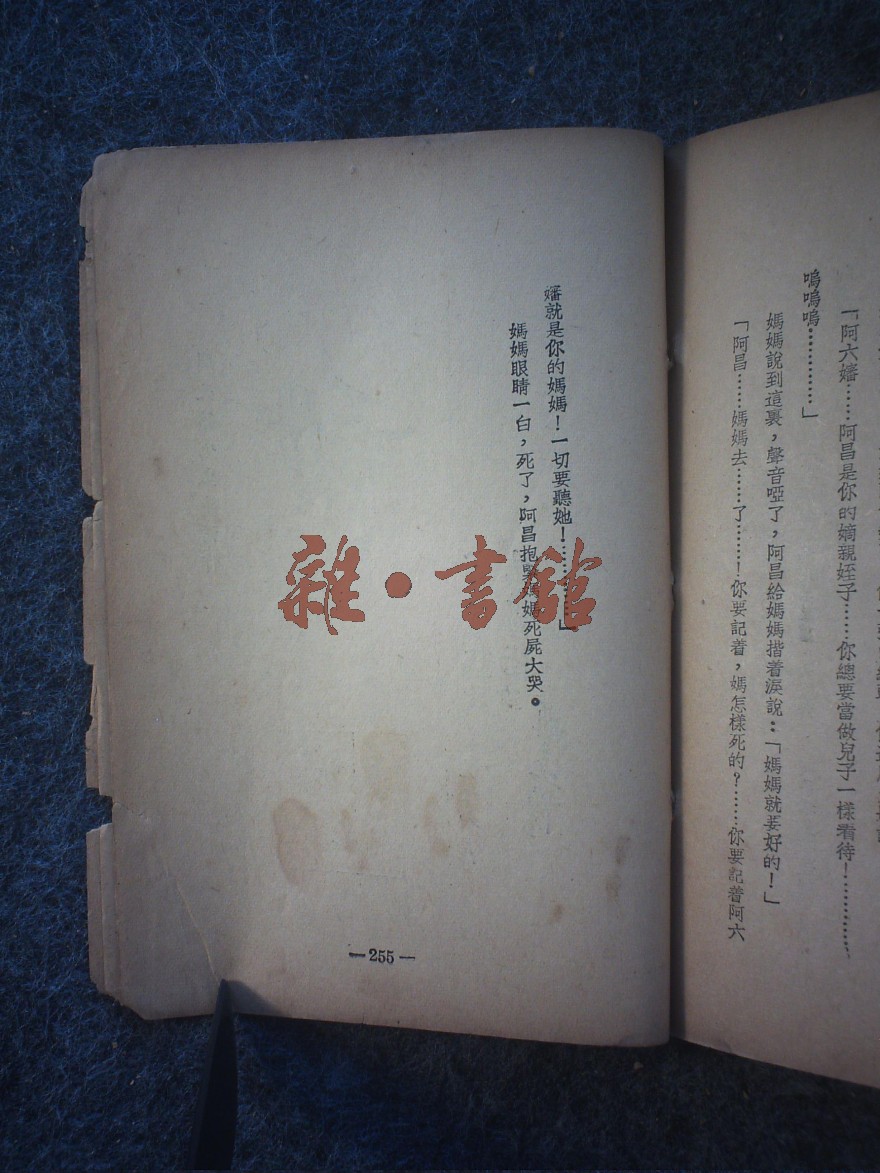 「阿六嬸……阿昌是你的嫡親姪子……你總要當做兒子一樣看待！…………
嗚嗚嗚…………」
媽媽說到這裏，聲音啞了，阿昌給媽媽揩着淚說：「媽媽就要好的！」
「阿昌……媽媽去……了……！你要記着，媽怎樣死的？……你要記着阿六
嬸就是你的媽媽！一切要聽她！…………」
媽媽眼睛一白，死了，阿昌抱緊媽媽死屍大哭。
—255—
雜·書館